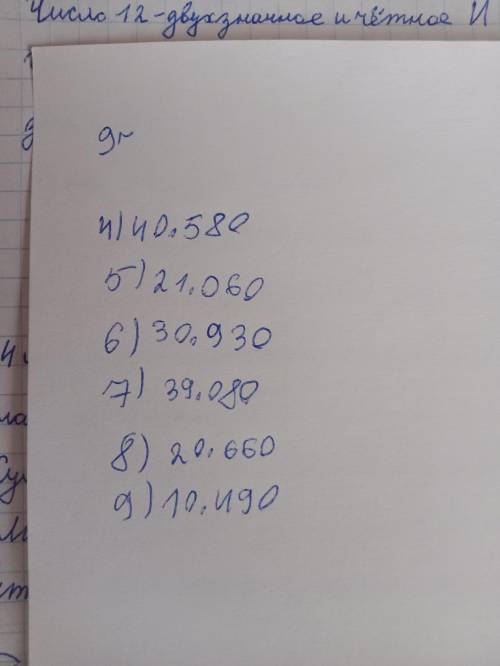 Число 12-двухзначное и чётное И
9г
4) 40.580
5) 21.060
6) 30.930
7) 39.080
8) 20.660
9) 10.490